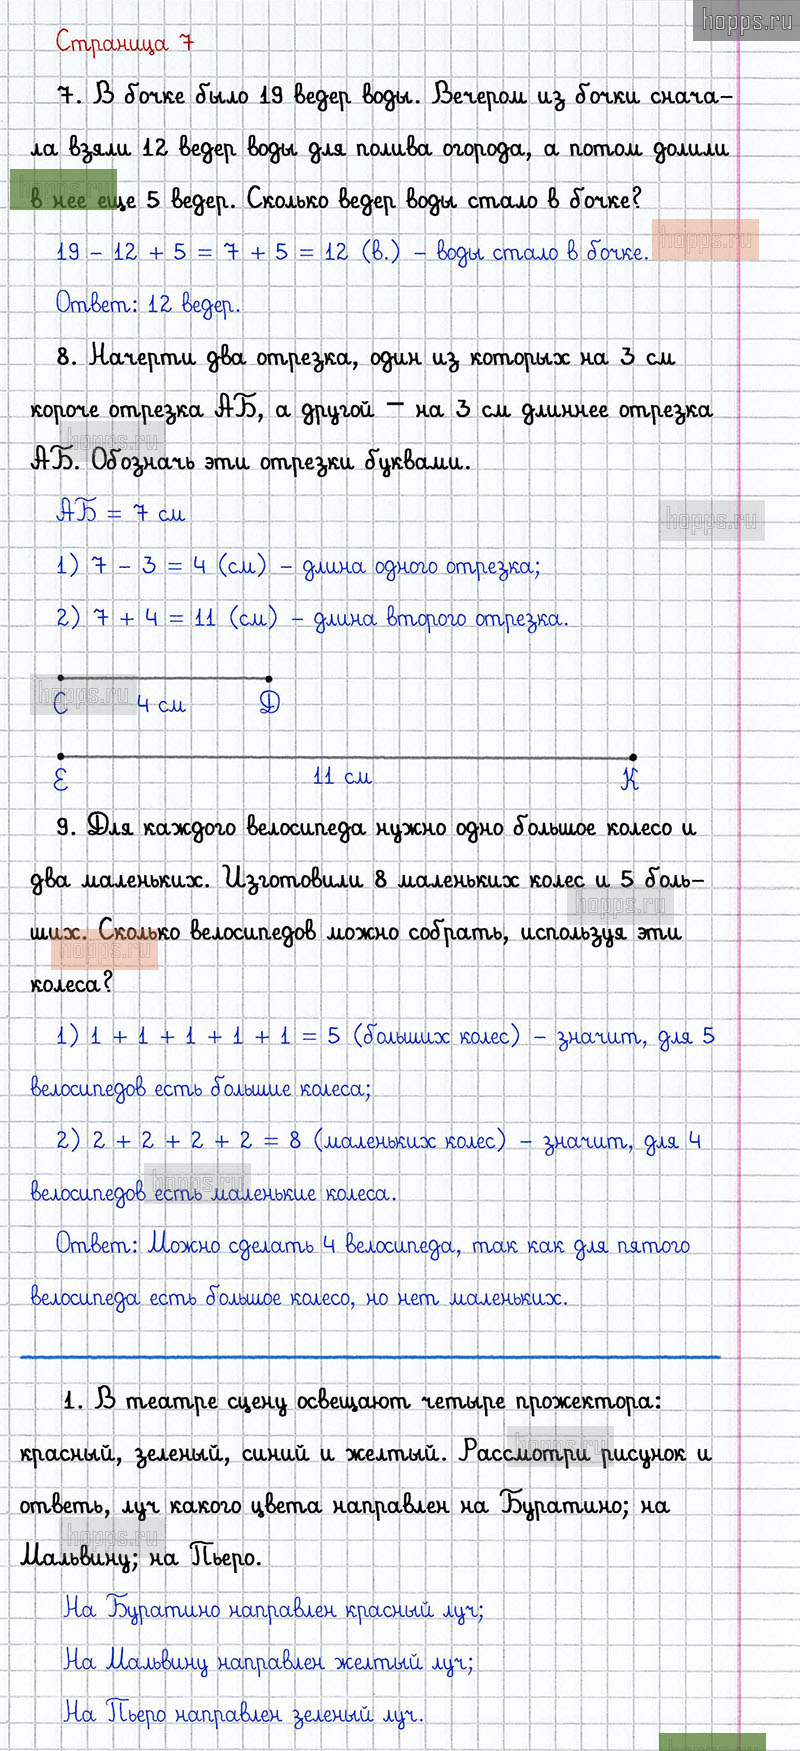 hopps.ru
Страница 7
7. В бочке было 19 ведер воды. Вечером из бочки снача-
ла взяли 12 ведер воды для полива огорода, а потом долили
в нее еще 5 ведер. Сколько ведер воды стало в бочке?
hopps.ru
19 - 12 + 5 = 7 + 5 = 12 (в.) - воды стало в бочке.
hopps.ru
Ответ: 12 ведер.
8. Начерти два отрезка, один из которых на 3 см
короче отрезка АБ, а другой - на 3 см длиннее отрезка
hopps.ru
АБ. Обозначь эти отрезки буквами.
АБ = 7 см
hopps.ru
1) 7 - 3 = 4 (см) - длина одного отрезка;
2) 7 + 4 = 11 (см) - длина второго отрезка.
hopps.ru
С 4 см Д
Е 11 см К
9. Для каждого велосипеда нужно одно большое колесо и
два маленьких. Изготовили 8 маленьких колес и 5 боль-
hopps.ru
ших. Сколько велосипедов можно собрать, используя эти
hopps.ru
колеса?
1) 1 + 1 + 1 + 1 + 1 = 5 (больших колес) - значит, для 5
велосипедов есть большие колеса;
2) 2 + 2 + 2 + 2 = 8 (маленьких колес) - значит, для 4
hopps.ru
велосипедов есть маленькие колеса.
Ответ: Можно сделать 4 велосипеда, так как для пятого
велосипеда есть большое колесо, но нет маленьких.
1. В театре сцену освещают четыре прожектора:
hopps.ru
красный, зеленый, синий и желтый. Рассмотри рисунок и
ответь, луч какого цвета направлен на Буратино; на
hopps.ru
Мальвину; на Пьеро.
На Буратино направлен красный луч;
На Мальвину направлен желтый луч;
На Пьеро направлен зеленый луч.